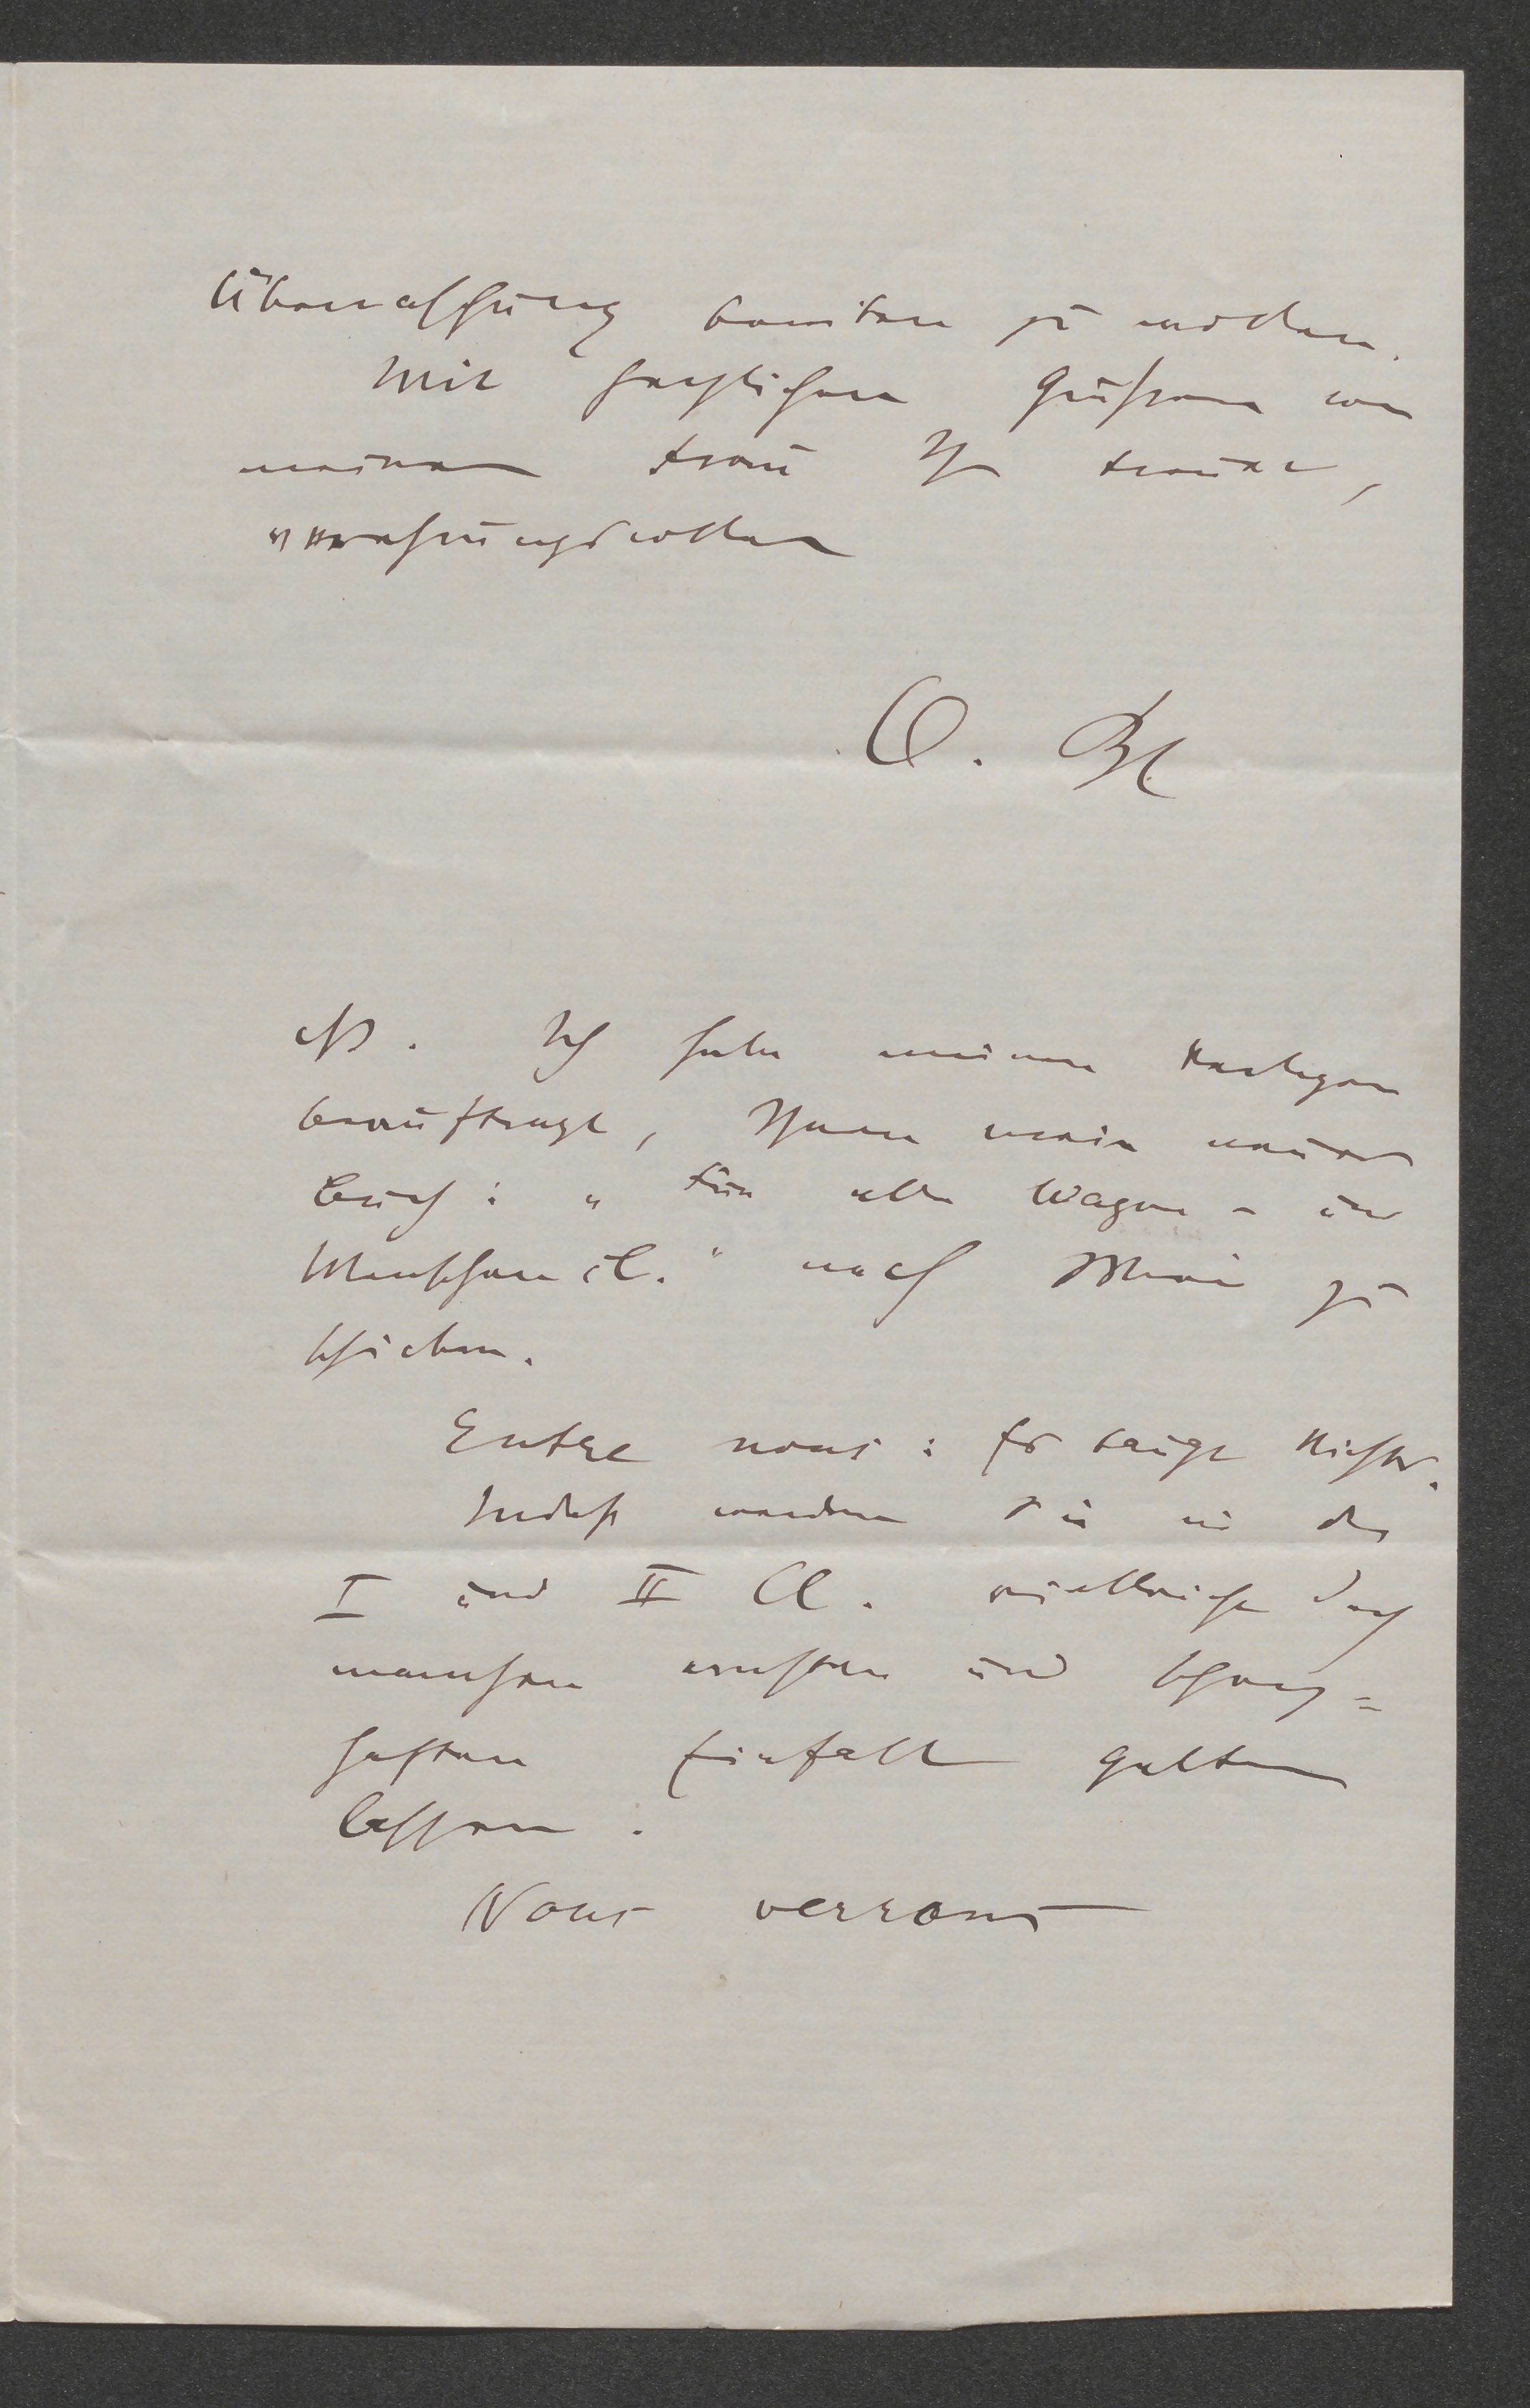 Überraschung bereiten zu wollen.
Mit herzlichen Grüßen von
meiner Frau Ihr treuer,
verehrungsvoller
O. Bl
NB. Ich habe meinen Verleger
beauftragt, Ihnen mein neues
Buch: „Für alle Wagen- und
Menschen Cl." nach zu
schicken.
Entre nous: Es taugt Nichts.
Indeß werden Sie in der
I und II Cl. vielleicht doch
manchen ernsten und scherz=
haften Einfall gelten
lassen.
Nous verrons